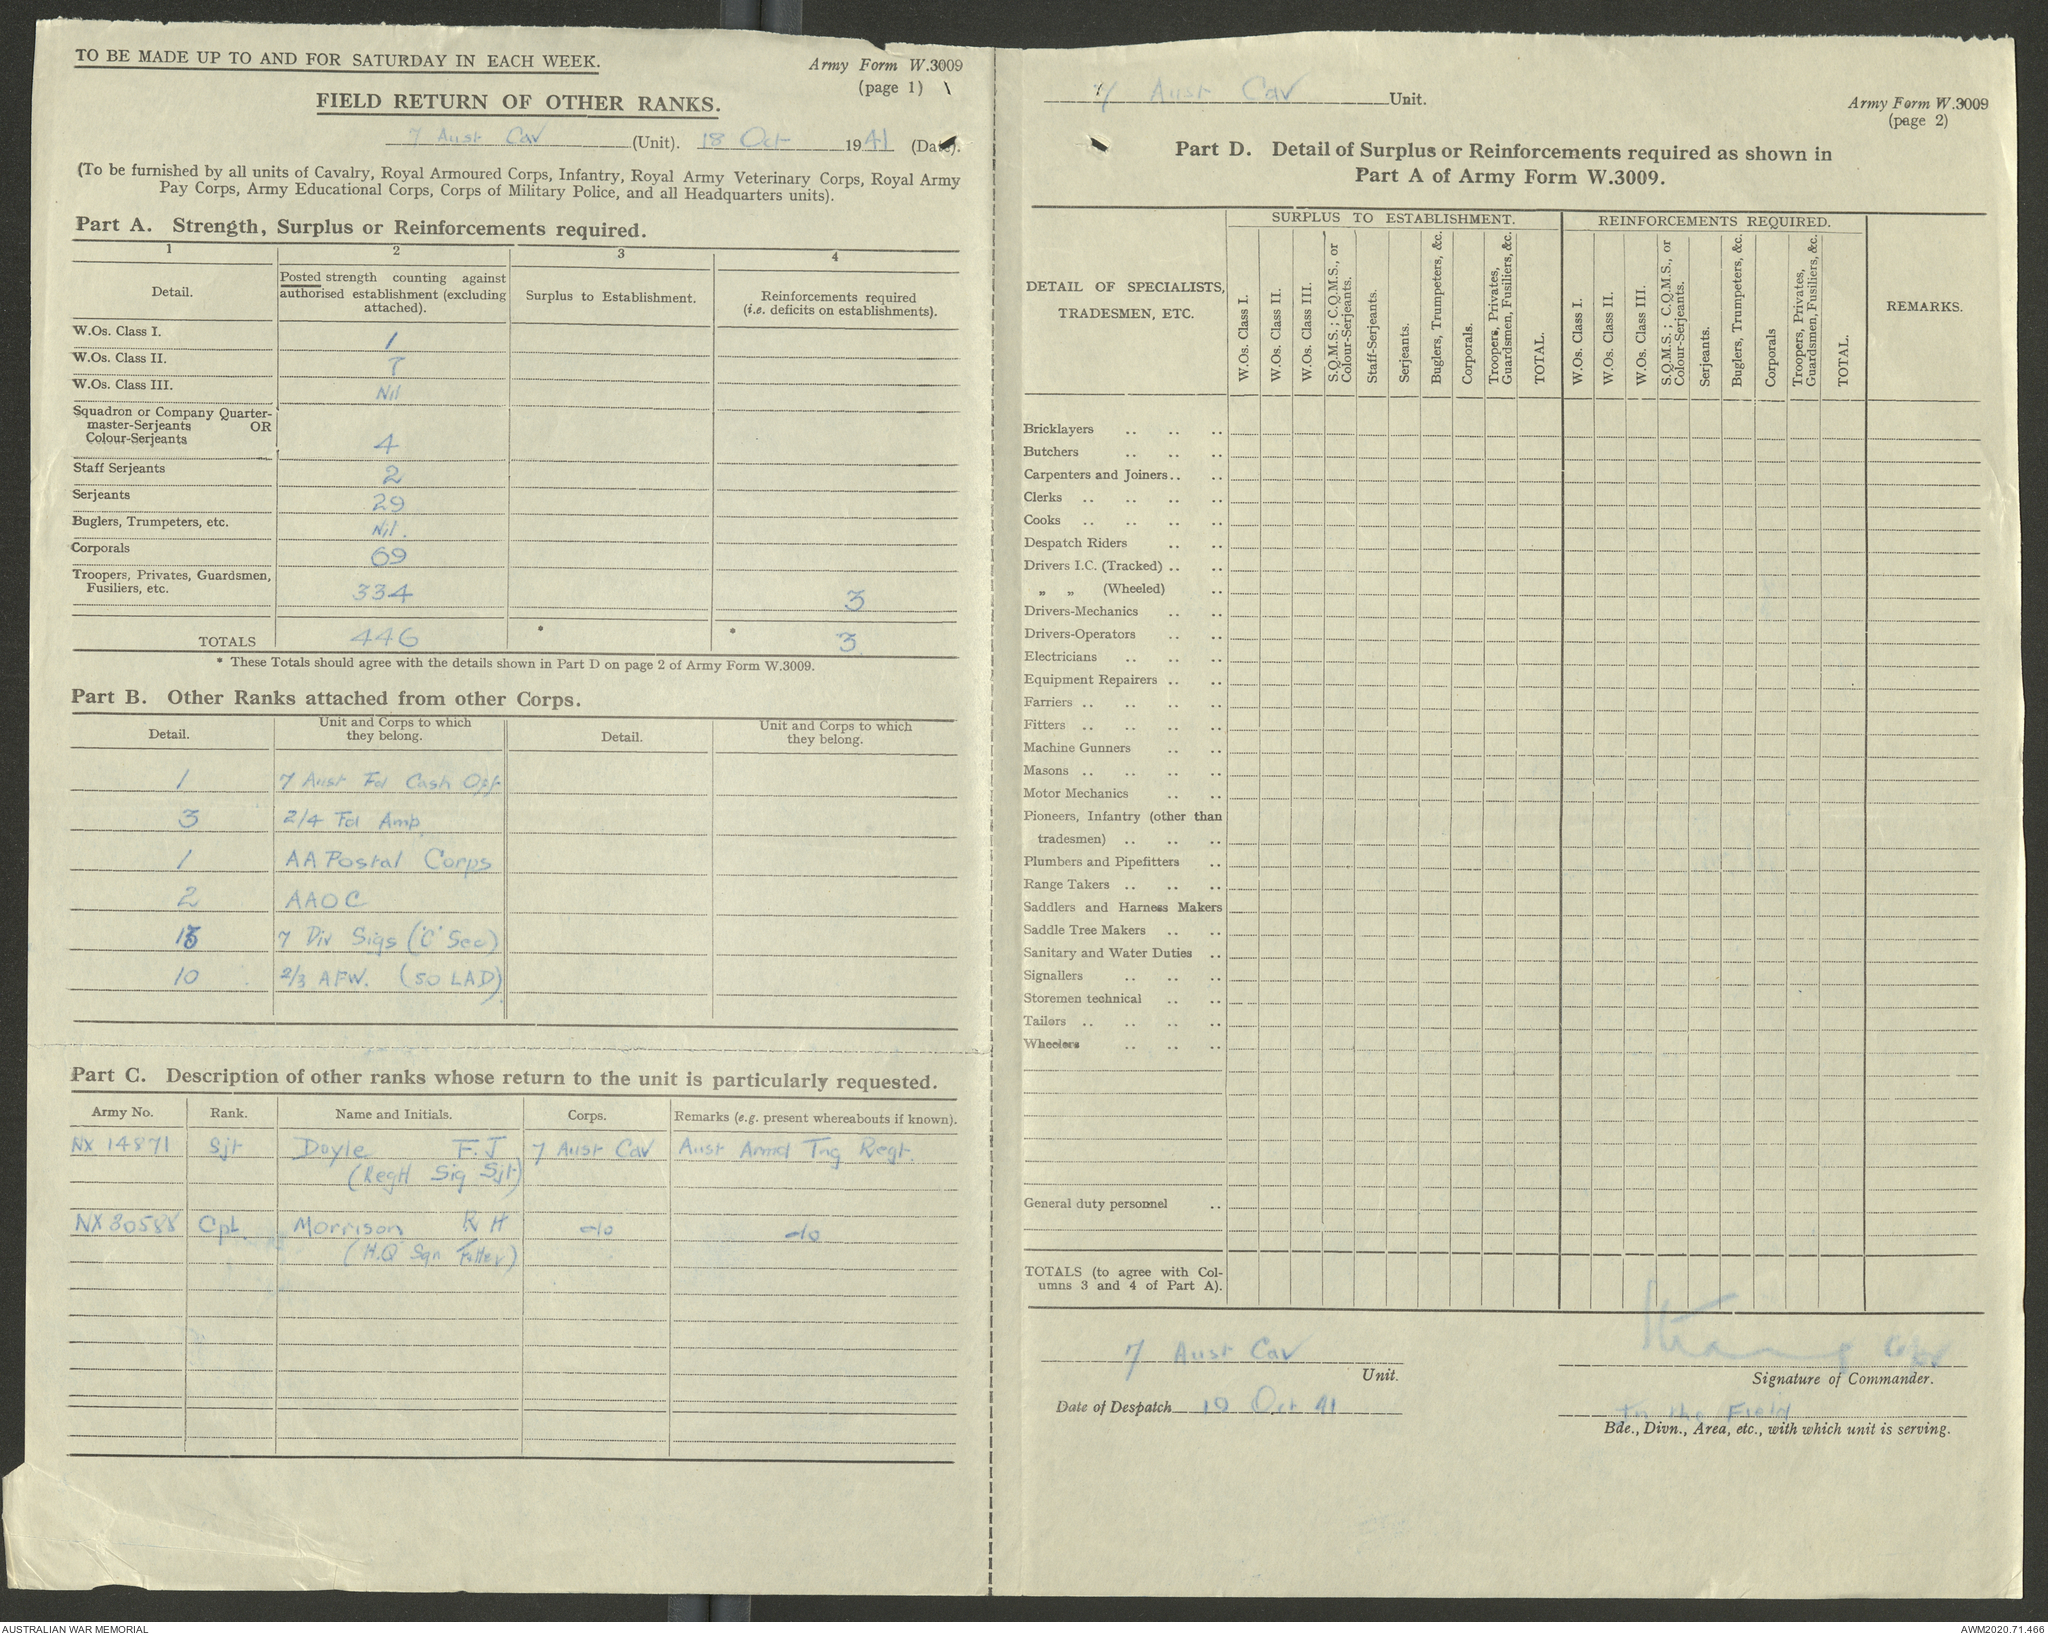 TO BE MADE UP TO AND FOR SATURDAY IN EACH WEEK.
Army Form W.3009
(page 1)
FIELD RETURN OF OTHER RANKS.
7 Aust Cav (Unit). 18 Oct 1941 (Date).
(To be furnished by all units of Cavalry, Royal Armoured Corps, Infantry, Royal Army Veterinary Corps, Royal Army
Pay Corps, Army Educational Corps, Corps of Military Police, and all Headquarters units).
Part A. Strength, Surplus or Reinforcements required.
1 2 3 4
Detail.
Posted strength counting against
authorised establishment (excluding
attached).
Surplus to Establishment.
Reinforcements required
(i.e. deficits on establishments).
W.Os. Class I. 1
W.Os. Class II. 7
W.Os. Class III. Nil
Squadron or Company Quarter-
master-Serjeants OR
Colour-Serjeants 4
Staff Serjeants 2
Serjeants 29
Buglers, Trumpeters, etc. Nil.
Corporals 69
Troopers, Privates, Guardsmen,
Fusiliers, etc. 334 3
TOTALS 446 * * 3
* These Totals should agree with the details shown in Part D on page 2 of Army Form W.3009.
Part B. Other Ranks attached from other Corps.
Detail. Unit and Corps to which
they belong.
Detail. Unit and Corps to which
they belong.
1 7 Aust Fd Cash Off
3 2/4 Fd Amb
1 AA Postal Corps
2 AAOC
7 Div Sigs ('C' Sec)
10 2/3 AFW. (50 LAD)
Part C. Description of other ranks whose return to the unit is particularly requested.
Army No. Rank. Name and Initials. Corps. Remarks (e.g. present whereabouts if known).
NX 14871 Sjt Doyle F.J 7 Aust Cav Aust Armd Tng Regt.
(Regtl Sig Sjt)
NX30588 Cpl. Morrison R H do do
(H.Q Sqn Fitter)
7 Aust Cav Unit.
Army Form W.3009
(page 2)
Part D. Detail of Surplus or Reinforcements required as shown in
Part A of Army Form W.3009.
DETAIL OF SPECIALISTS,
TRADESMEN, ETC.
SURPLUS TO ESTABLISHMENT.
W.Os. Class I.
W.Os. Class II.
W.Os. Class III.
S.Q.M.S.; C.Q.M.S., or
Colour-Serjeants.
Staff-Serjeants.
Serjeants.
Buglers, Trumpeters, &c.
Corporals.
Troopers, Privates,
Guardsmen, Fusiliers, &c.
TOTAL.
REINFORCEMENTS REQUIRED.
W.Os. Class I.
W.Os. Class II.
W.Os. Class III.
S.Q.M.S.; C.Q.M.S., or
Colour-Serjeants.
Serjeants.
Buglers, Trumpeters, &c.
Corporals
Troopers, Privates,
Guardsmen, Fusiliers, &c.
TOTAL.
REMARKS.
Bricklayers .. .. ..
Butchers .. .. ..
Carpenters and Joiners .. ..
Clerks .. .. .. ..
Cooks .. .. .. ..
Despatch Riders .. ..
Drivers I.C. (Tracked) .. ..
„ „ (Wheeled) ..
Drivers-Mechanics .. ..
Drivers-Operators .. ..
Electricians .. .. ..
Equipment Repairers .. ..
Farriers .. .. .. ..
Fitters .. .. .. ..
Machine Gunners .. ..
Masons .. .. .. ..
Motor Mechanics .. ..
Pioneers, Infantry (other than
tradesmen) .. .. ..
Plumbers and Pipefitters ..
Range Takers .. .. ..
Saddlers and Harness Makers
Saddle Tree Makers .. ..
Sanitary and Water Duties ..
Signallers .. .. ..
Storemen technical .. ..
Tailors .. .. .. ..
Wheelers .. .. ..
General duty personnel ..
TOTALS (to agree with Col-
umns 3 and 4 of Part A).
7 Aust Cav
Unit.
Signature of Commander.
Date of Despatch 19 Oct 41
In the Field
Bde., Divn., Area, etc., with which unit is serving.
AUSTRALIAN WAR MEMORIAL
AWM2020.71.466